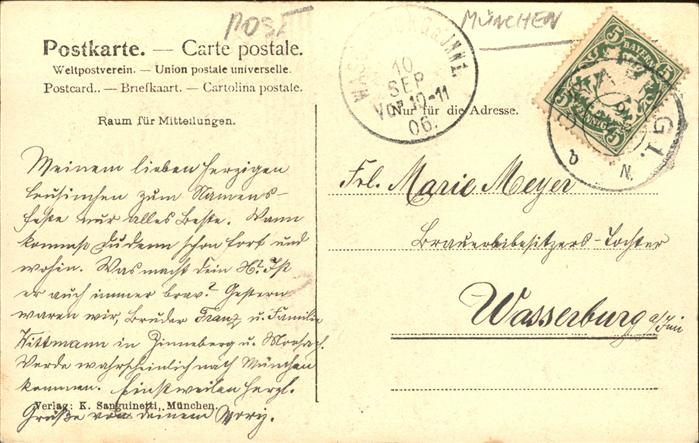 POST
MÜNCHEN
Postkarte. — Carte postale.
Weltpostverein. — Union postale universelle.
Postcard. — Briefkaart. — Cartolina postale.
10
SEP
Vor 10-11
06.
5 BAYERN 5
5 PFENNIG 5
G 1.
b
N.
Nur für die Adresse.
Raum für Mitteilungen.
Meinem lieben herzigen
zum Namens-
feste nur alles Beste. Wann
kommst Du denn schon fort und
wohin. Was macht dein Hr. Ist
er auch immer brav? Gestern
waren wir, Bruder Franz u. Familie
Wittmann in Zinneberg u. Moosach.
Werde wahrscheinlich nach München
kommen. Einstweilen herzl.
Grüße von deinem
Verlag: K. Sanguinetti, München.
Frl. Marie Meyer
Brauereibesitzers-Tochter
Wasserburg a/Inn